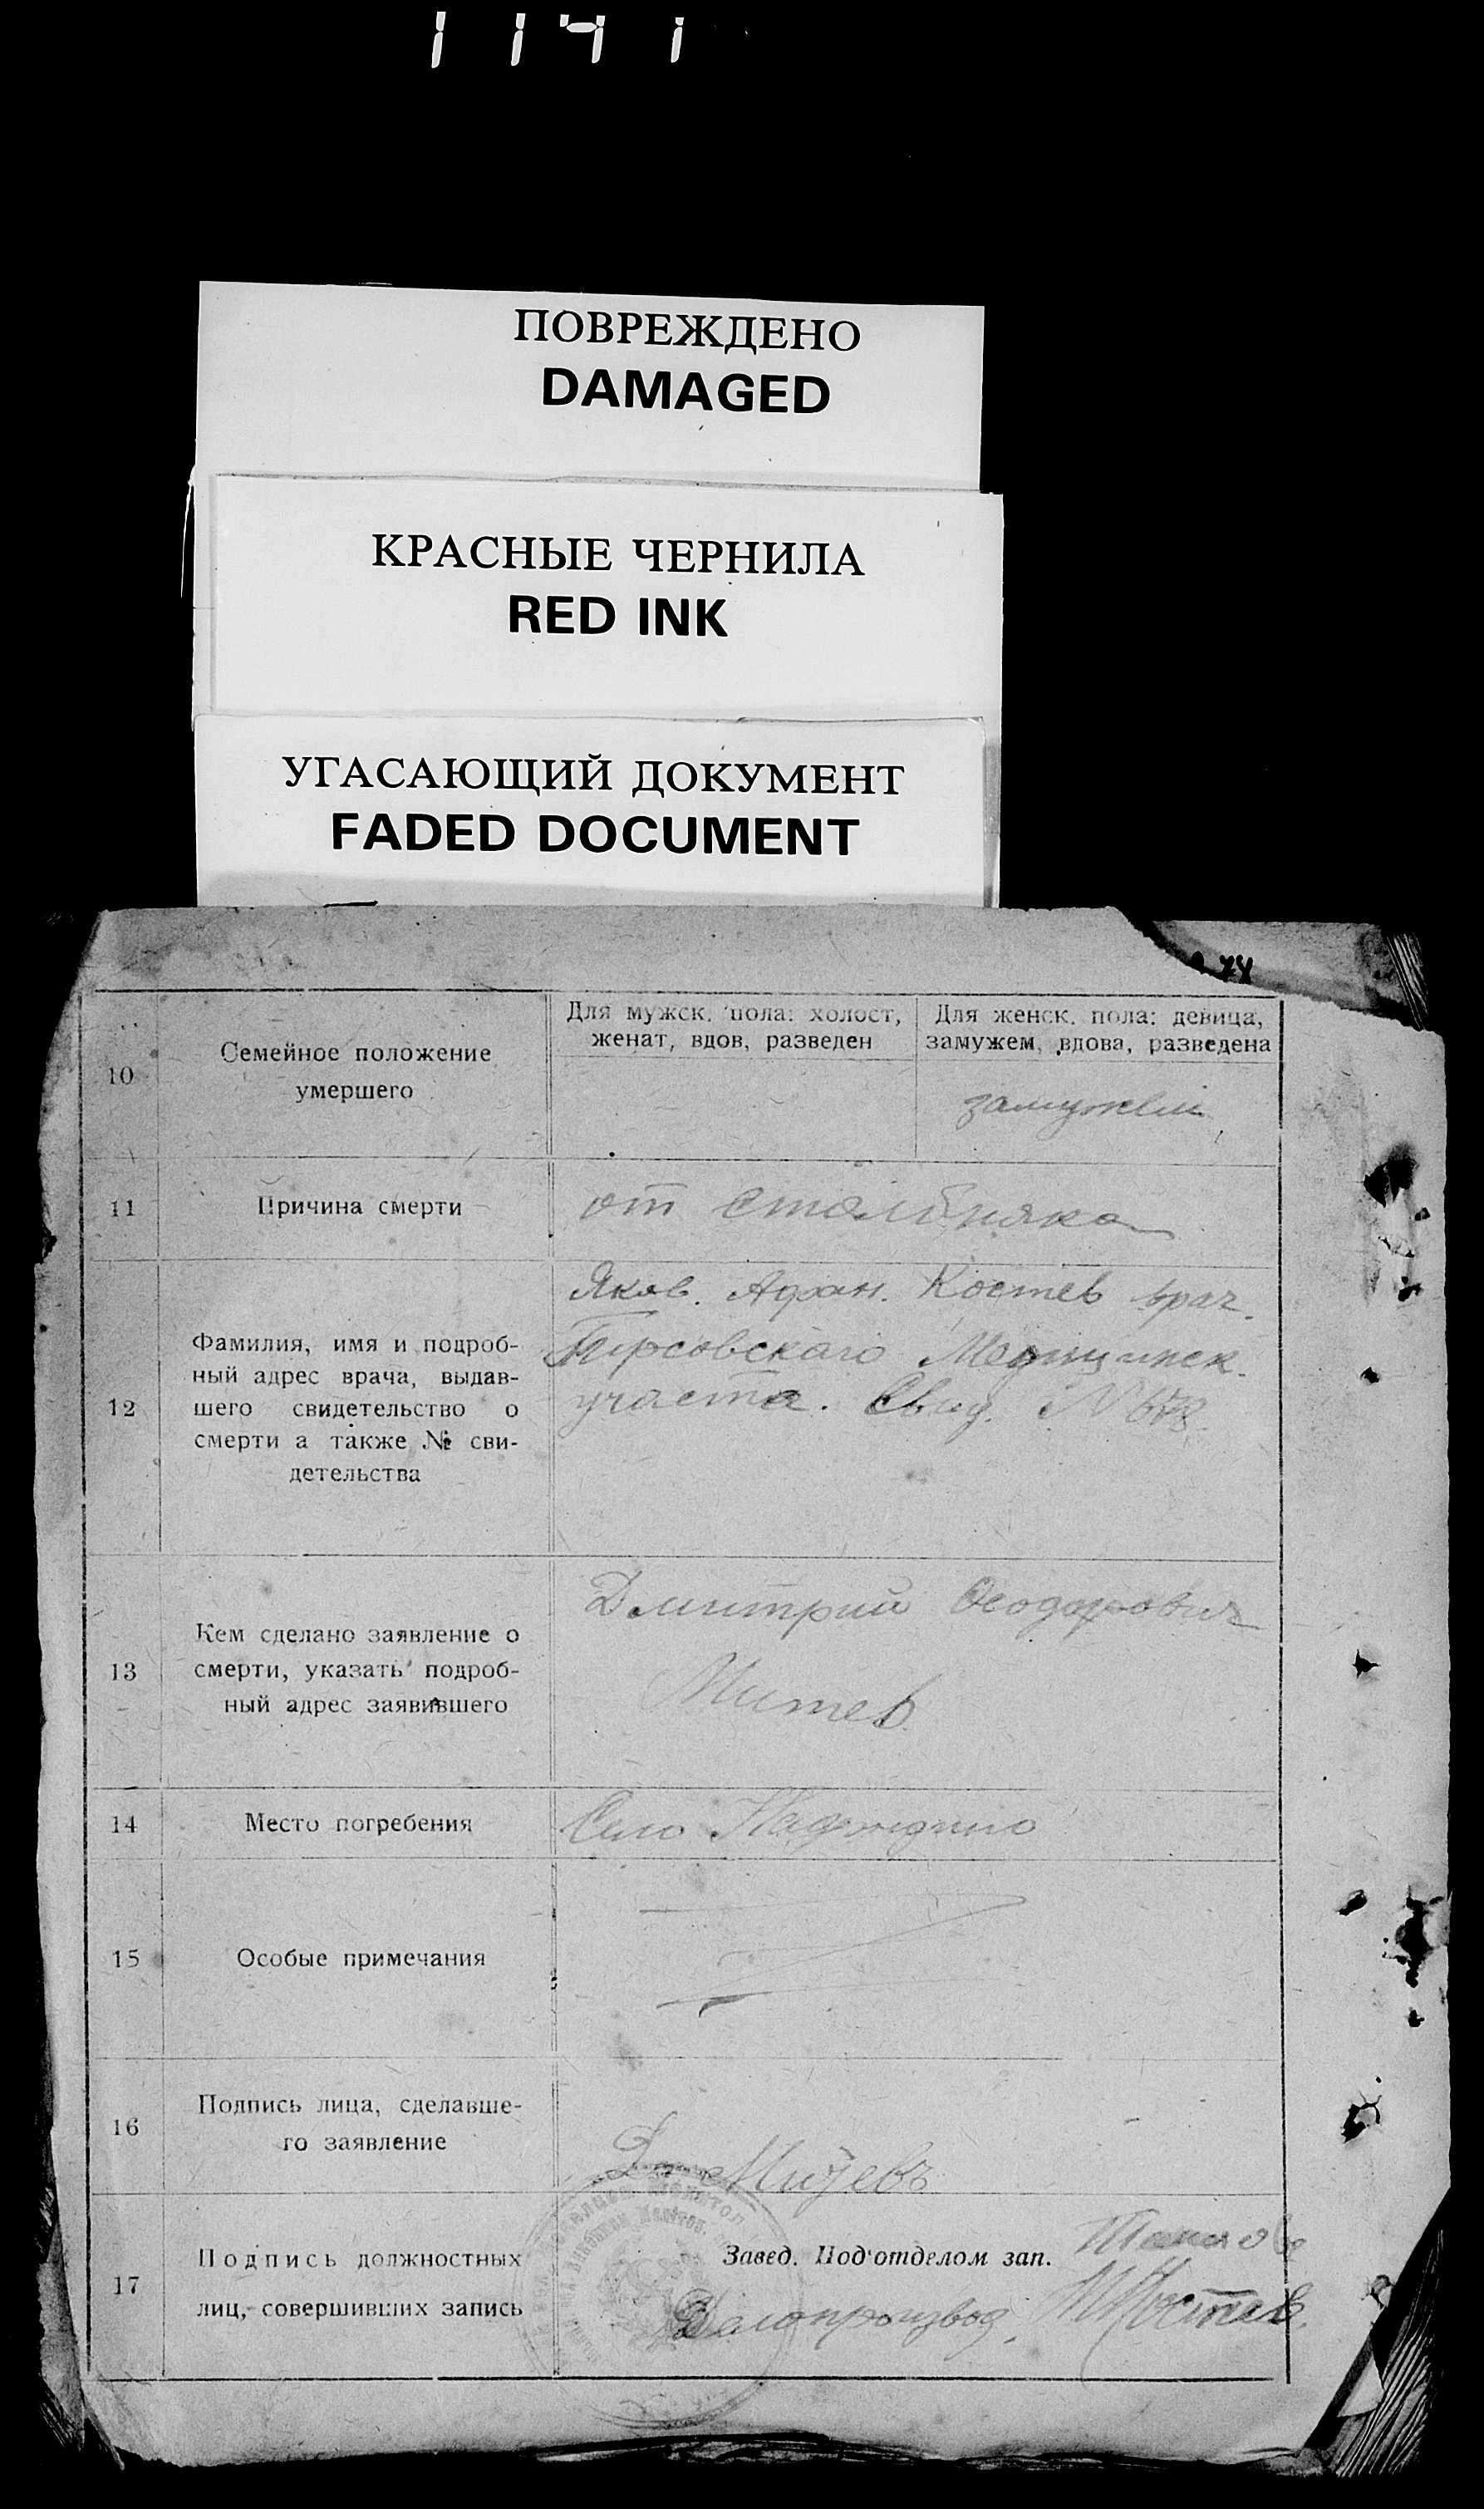 1141
ПОВРЕЖДЕНО
DAMAGED
КРАСНЫЕ ЧЕРНИЛА
RED INK
УГАСАЮЩИЙ ДОКУМЕНТ
FADED DOCUMENT
24
10
Семейное положение
умершего
Для мужск. пола: холост,
женат, вдов, разведен
Для женск. пола: девица,
замужем, вдова, разведена
замужем
11
Причина смерти
от столбняка
12
Фамилия, имя и подроб-
ный адрес врача, выдав-
шего свидетельство о
смерти а также № сви-
детельства
Яков. Афан. Костев врач.
Медицинск.
участка. Свид. N
13
Кем сделано заявление о
смерти, указать подроб-
ный адрес заявившего
Дмитрий Феодорович
Митев
14
Место погребения
Село
15
Особые примечания
16
Подпись лица, сделавше-
го заявление
Д. Митевъ
17
Подпись должностных
лиц, совершивших запись
Завед. Под'отделом зап.
Делопроизвод. Костев.